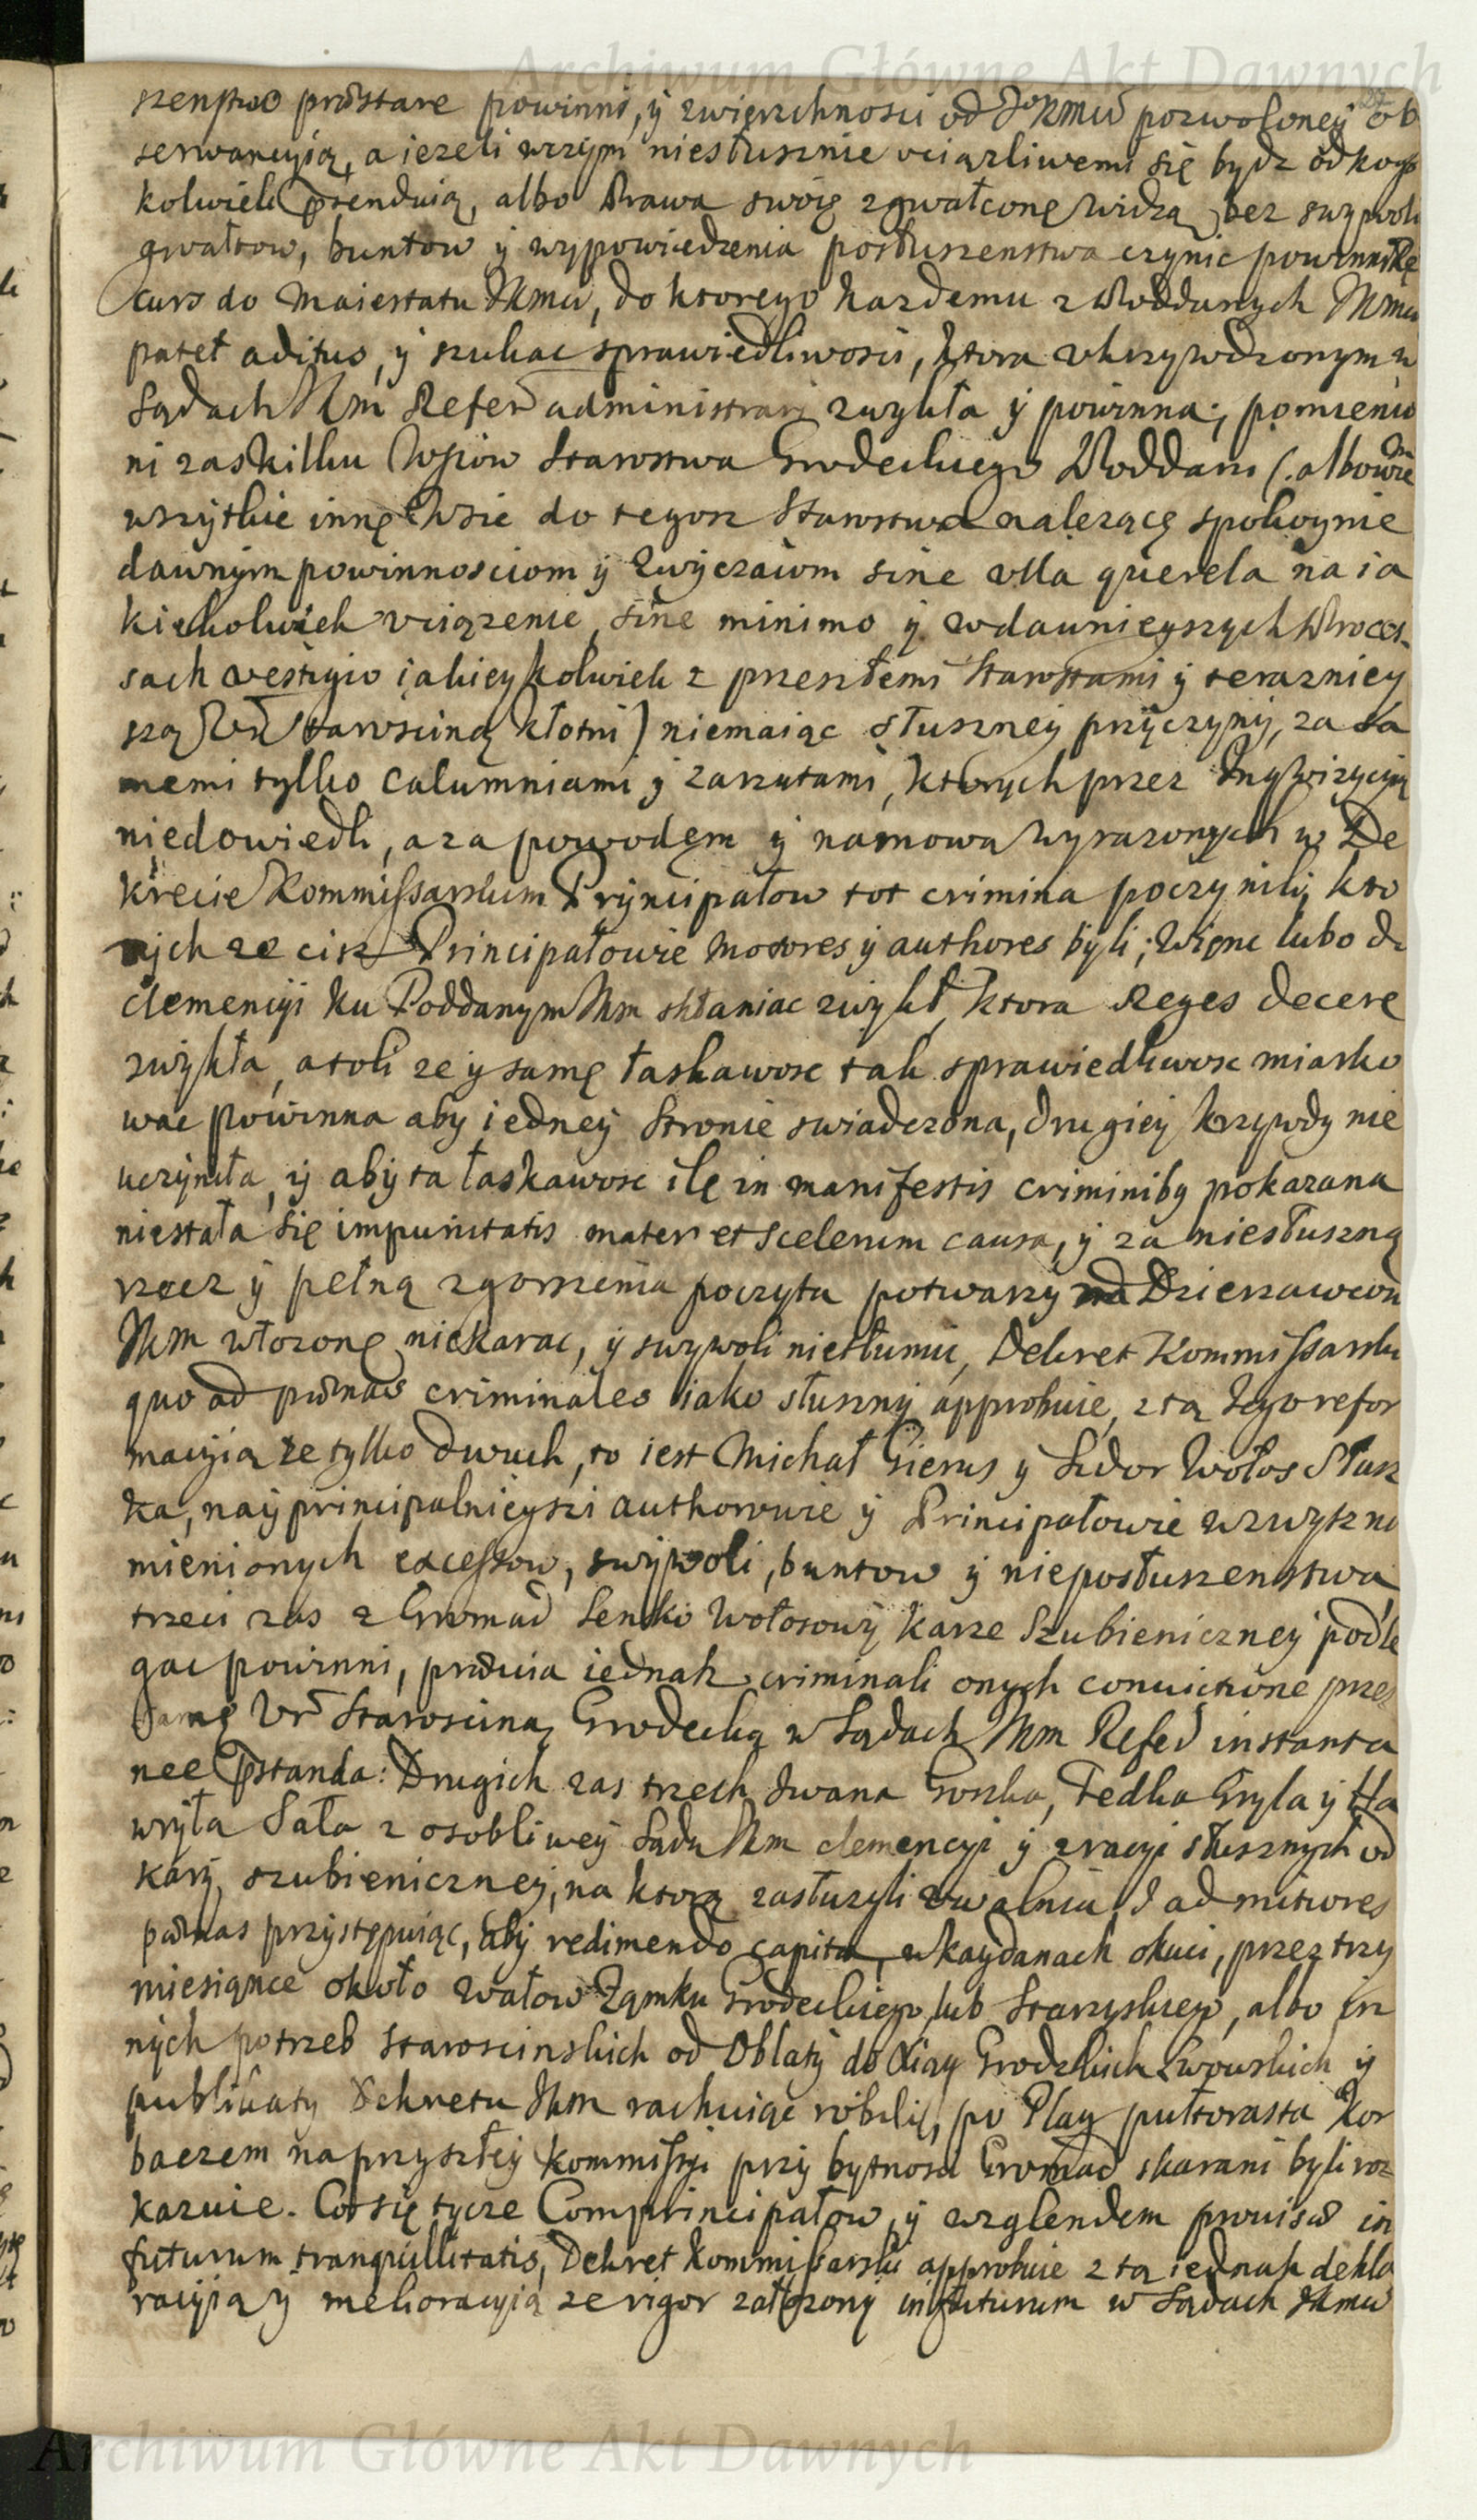 Archiwum Główne Akt Dawnych
szenstwo præstare powinni, y zwierzchnosci od JoKmci pozwoloney ob
serwancyią, a iezeli wczym niesłusznie uciązliwemi się bydz od kogo
kolwiek prætenduią, albo Prawa swoię zgwałconę widzą, bez swywoli
gwałtow, buntow y wypowiedzenia posłuszenstwa czynic powinni Re
curs do Maiestatu JKmci, do ktorego kazdemu z Poddanych JKmci
patet aditus, y szukac sprawiedliwosci, ktora ukrzywdzonym w
Sądach JKm Refer administrari zwykła y powinna; pomienio
ni zas kilku Wsiow Starostwa Grodeckiego Poddani (. albowie
wszytkie innę Wsie do tegosz Starostwa nalezącę spokoynie
dawnym powinnosciom y Zwyczaiom sine ulla querela na ia
kiekolwiek uciązenie, sine minimo y wdawnieyszych Proces
sach vestigio iakieykolwiek z przeszłemi Starostami y teraznie
szą Ur Starosciną kłotni) niemaiąc słuszney przyczyny, za sa
memi tylko calumniami y zarzutami, ktorych przez Inqwizycyią
niedowiedli, a za powodem y namową wyrazonych w De
krecie Kommissarskim Pryncipałow tot crimina poczynili, kto
rych ze cisz Principałowie motores y authores byli; Więnc lubo do
clemencyi ku Poddanym JKm skłaniac zwykł, ktora Reges decere
zwykła, atoli ze y samę łaskawosc tak sprawiedliwosc miarko
wac powinna aby iedney Stronie swiadczona, drugiey krzywdy nie
uczyniła, y aby ta łaskawosc ile in manifestis criminibq pokazana
niestała się impunitatis mater et scelerum causa, y za niesłuszną
rzecz y pełną zgorszenia poczyta potwarzy na Dzierzawcow
JKm włozonę niekarac, y swywoli nietłumic, Dekret Kommissarski
quo ad pœnas criminales iako słuszny approbuie, z tą tego refor
macyią ze tylko dwuch, to iest Michał Gierus y Sidor Wołos Słusz
ka, nayprincipalnieyszi authorowie y Principałowie wzwysz na
mienionych excessow, swywoli, buntow y nieposłuszenstwa
trzeci zas z Gromad Senko Wołosowy karze Szubieniczney podle
gac powinni, prævia iednak criminali onych convictione przez
Samę Ur Starosciną Grodecką w Sądach JKm Refer instanta
nee præstanda: Drugich zas trzech Iwana Goszka, Fedka Gryla y Ha
wryła Sała z osobliwey Sądu JKm clemencyi y z racyi słusznych od
kary szubieniczney, na ktorą zasłuzyli zwalnia, y ad mitiores
pœnas przystępuiąc, aby redimendo capita, w kaydanach okuci, przez trzy
miesiące około wałow Zamku Grodeckiego lub Starzyskiego, albo in
nych potrzeb Staroscinskich od Oblaty do Xiąg Grodzkich Lwowskich y
publikaty Dekretu JKm rachuiąc robili, po Plag pułtorasta Kor
baczem na przyszłey Kommissyi przy bytnosci Gromad skarani byli roz
kazuie. Co się tycze Comprincipałow, y wzglendem provisio in
futurum tranquillitatis, Dekret Kommissarski approbuie z tą iednak dekla
racyią y melioracyią ze rigor załozony in futurum w Sądach JKmci
Archiwum Główne Akt Dawnych